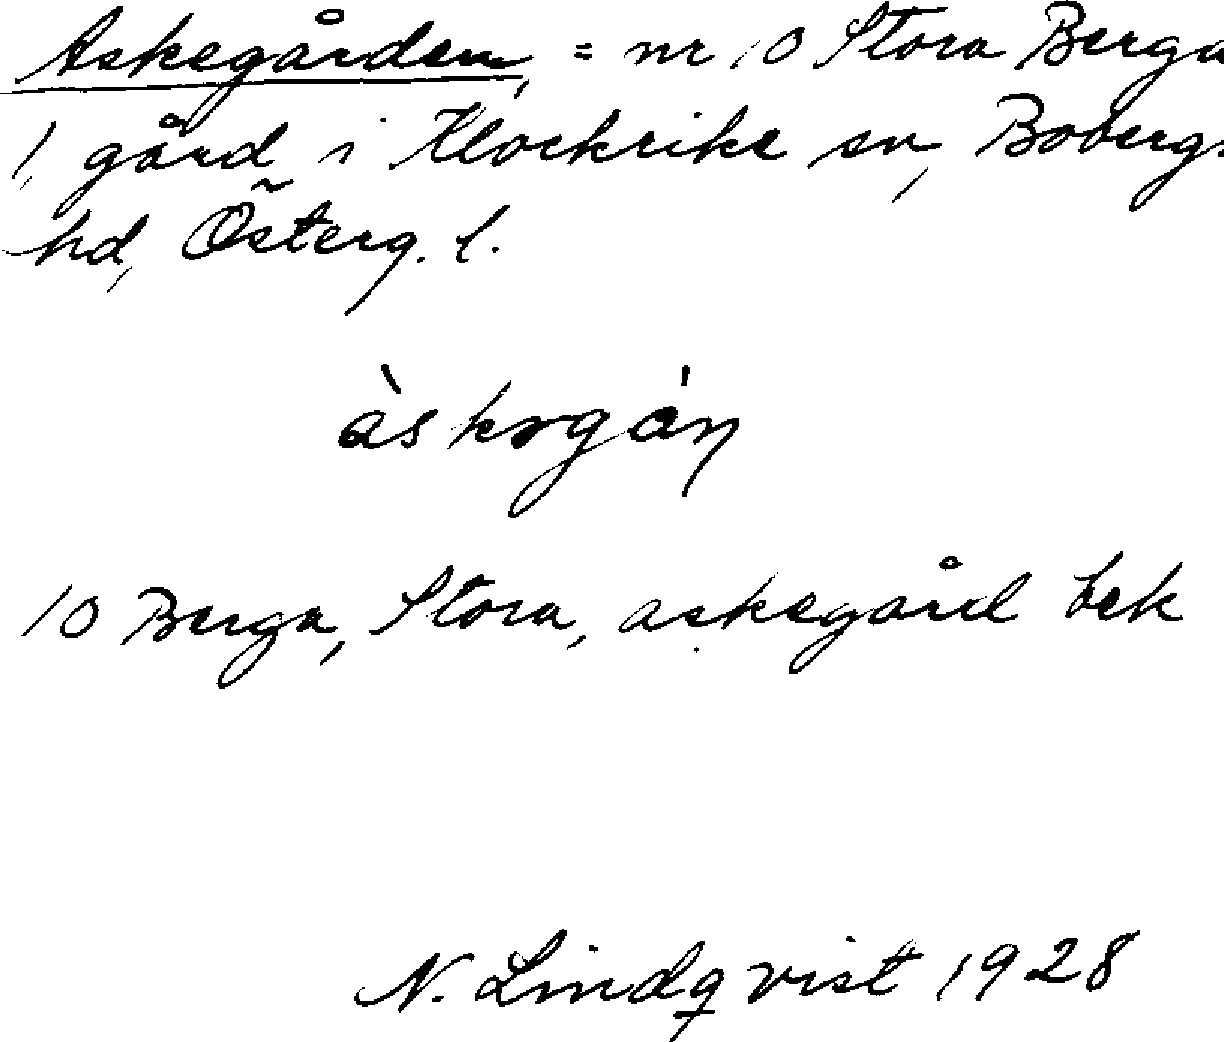 Askegården, = nr 10 Stora Berga
1, gård i Klockrike sn, Bobergs
hd, Österg. l.
àskəgán
10 Berga, Stora, askegård bek
N. Lindqvist 1928